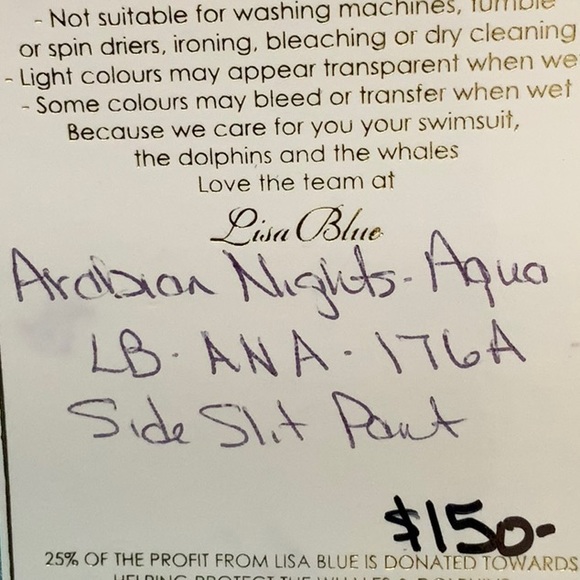 - Not suitable for washing machines, tumble
or spin driers, ironing, bleaching or dry cleaning
- Light colours may appear transparent when we
- Some colours may bleed or transfer when wet
Because we care for you your swimsuit,
the dolphins and the whales
Love the team at
Lisa Blue
Arabian Nights - Aqua
LB - ANA - 176A
Side Slit Pant
$150-
25% OF THE PROFIT FROM LISA BLUE IS DONATED TOWARDS
HELPING PROTECT THE WHALES &